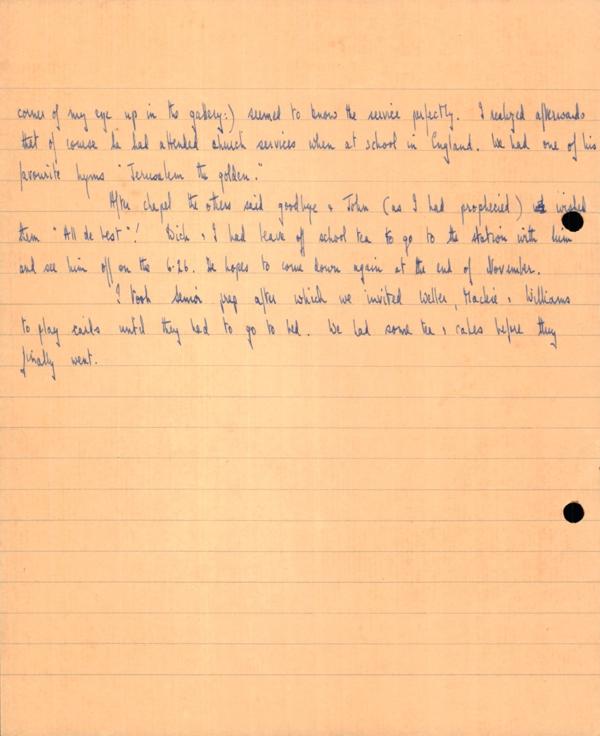 corner of my eye up in the gallery:) seemed to know the service perfectly. I realized afterwards
that of course he had attended church services when at school in England. We had one of his
favourite hyms "Jerusalem the golden."
After chapel the others said goodbye & John (as I had prophecied) wished
them "All de best"! Dick & I had leave of school tea to go to the station with him
and see him off on the 6.26. He hopes to come down again at the end of November.
I took senior prep after which we invited Weller, Mackie & Williams
to play cards until they had to go to bed. We had some tea & cakes before they
finally went.